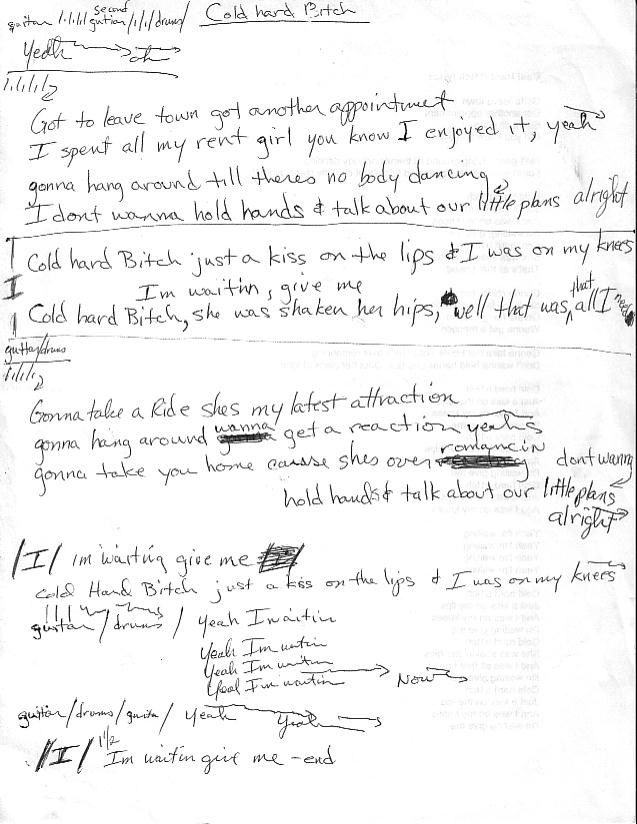 Cold hard Bitch
second
guitar /././/gution/././drums/
Yeah oh
/././././
Got to leave town got another appointment
I spent all my rent girl you know I enjoyed it, yeah
gonna hang around till theres no body dancing
I dont wanna hold hands & talk about our little plans alright
Cold hard Bitch just a kiss on the lips & I was on my knees
I
Im waitin, give me
that
Cold hard Bitch, she was shaken her hips, well that was all I need
guttar/drums
/././././
Gonna take a Ride shes my latest attraction
gonna hang around wanna get a reaction yeahs
gonna take you home causse shes over romancin dont wanna
hold hands & talk about our little plans
alright
/I/ im waiting give me
Cold Hard Bitch just a kiss on the lips & I was on my knees
guitar / drums / yeah I waitin
Yeah Im waitin
Yeah Im waitin
Yeal I'm waitin Now
guitar/drums/guita/ Yeah Yeah
/I/ 1½ Im waitin give me - end